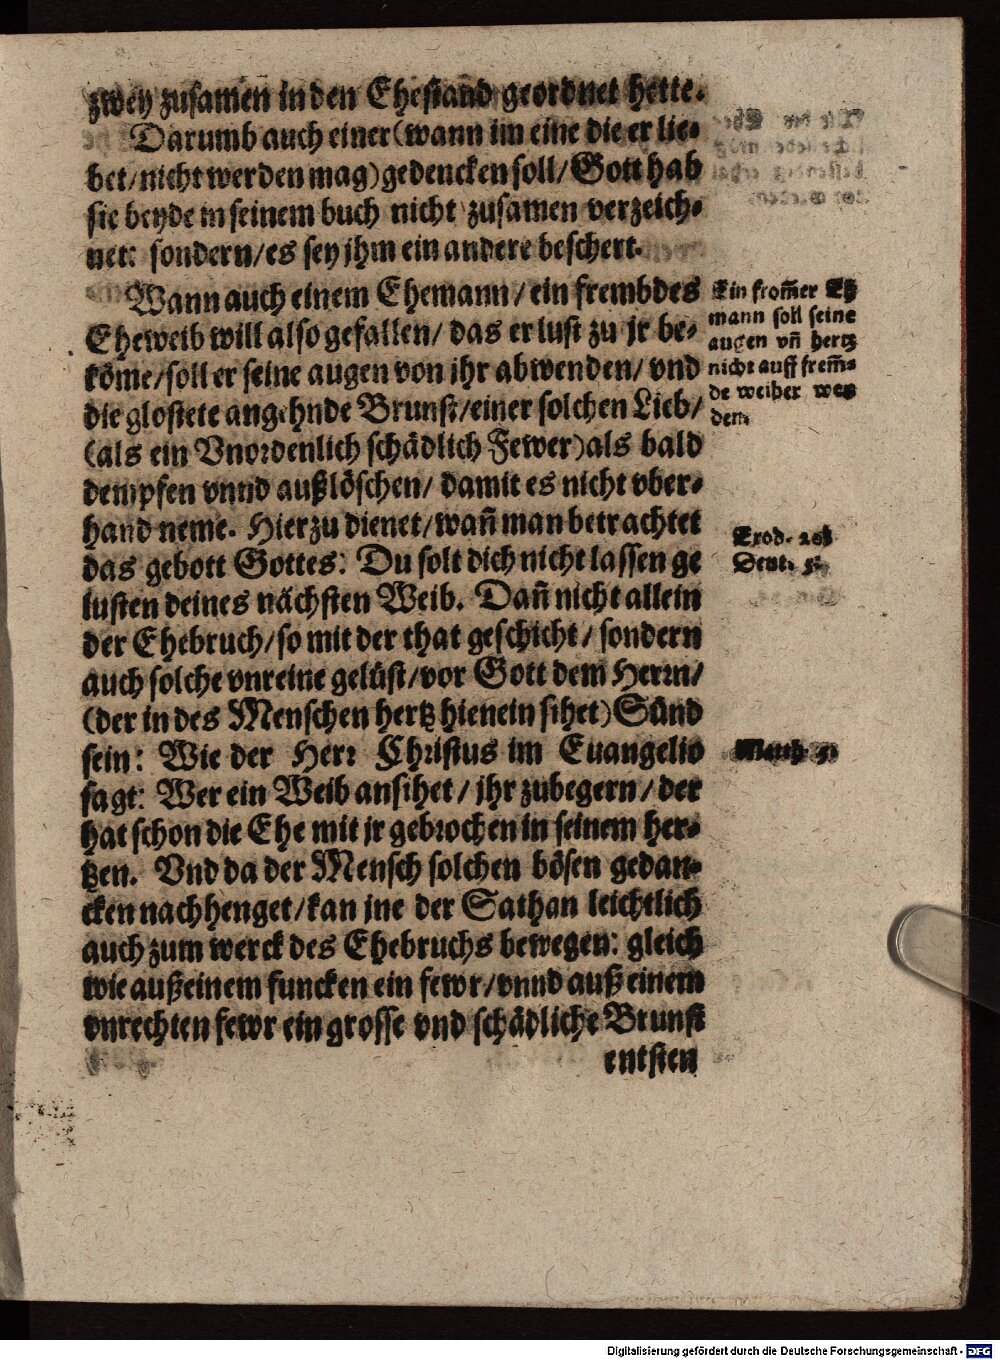 zwey zusamen in den Ehestand geordnet hette.
Darumb auch einer (wann im eine die er lie-
bet/ nicht werden mag) gedencken soll/ Gott hab
sie beyde in seinem buch nicht zusamen verzeich-
net: sondern/ es sey jhm ein andere beschert.
Wann auch einem Ehemann/ ein frembdes
Eheweib will also gefallen/ das er lust zu jr be-
köme/ soll er seine augen von jhr abwenden/ vnd
die glostete angehnde Brunst/ einer solchen Lieb/
(als ein Vnordenlich schädlich Fewer) als bald
dempfen vnnd außlöschen/ damit es nicht vber-
hand neme. Hierzu dienet/ wañ man betrachtet
das gebott Gottes: Du solt dich nicht lassen ge
lusten deines nächsten Weib. Dañ nicht allein
der Ehebruch/ so mit der that geschicht/ sondern
auch solche vnreine gelüst/ vor Gott dem Herrn/
(der in des Menschen hertz hienein sihet) Sünd
sein: Wie der Herr Christus im Euangelio
sagt: Wer ein Weib ansihet/ jhr zubegern/ der
hat schon die Ehe mit jr gebrochen in seinem her-
tzen. Vnd da der Mensch solchen bösen gedan-
cken nachhenget/ kan jne der Sathan leichtlich
auch zum werck des Ehebruchs bewegen: gleich
wie außeinem funcken ein fewr/ vnnd auß einem
vnrechten fewr ein grosse vnd schädliche Brunst
entsten
Ein from̃er Eh
mann soll seine
augen vñ hertz
nicht auff frem̃-
de weiber wen
den.
Exod. 20.
Deut. 5.
Matth. 5.
Digitalisierung gefördert durch die Deutsche Forschungsgemeinschaft - DFG